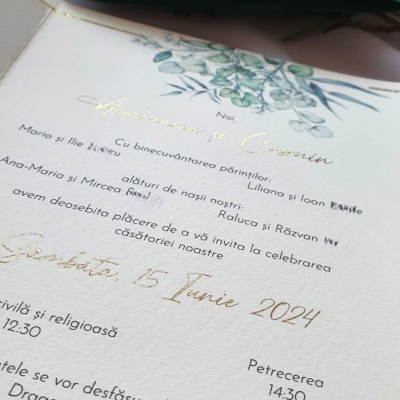 Noi,
și Cosmin
Cu binecuvântarea părinților:
Maria și Ilie
Liliana și Ioan
alături de nașii noștri:
Ana-Maria și Mircea
Raluca și Răzvan
avem deosebita plăcere de a vă invita la celebrarea
căsătoriei noastre
Sâmbăta, 15 Iunie 2024
civilă și religioasă
12:30
Petrecerea
14:30
se vor